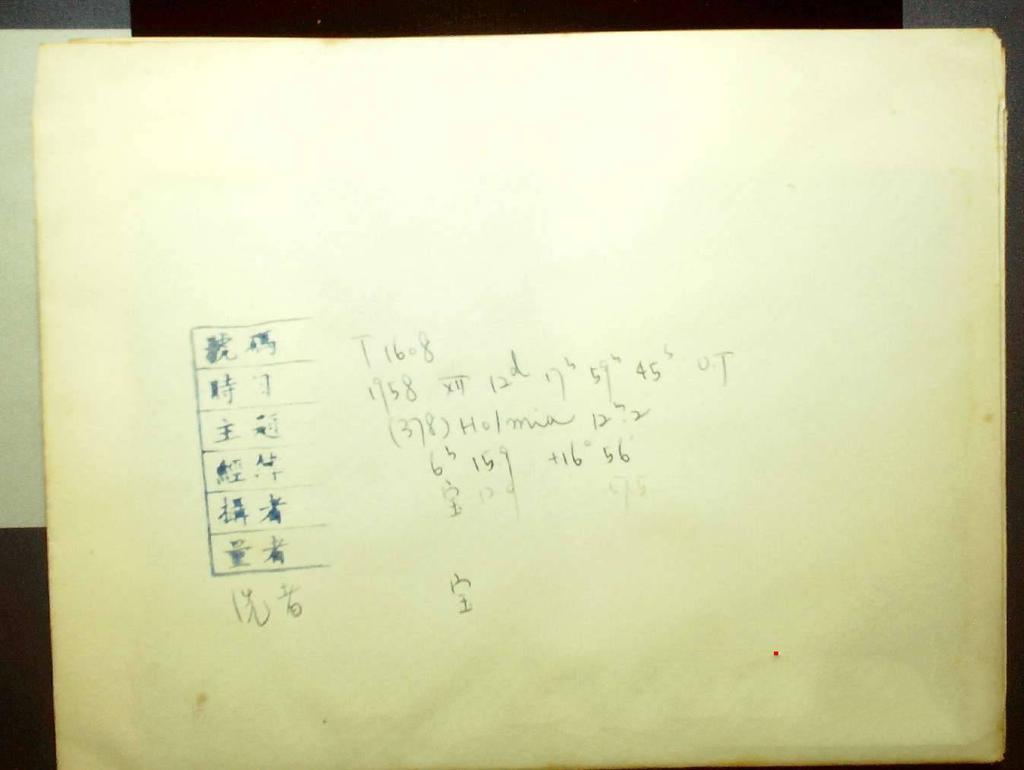 號碼 T 1608
時刻 1958 XII 12d 17h 59m 45s U.T
主題 (378) Holmia 12m.2
經緯 6h 15.9 +16° 56'
攝者 宝
量者
洗者 宝